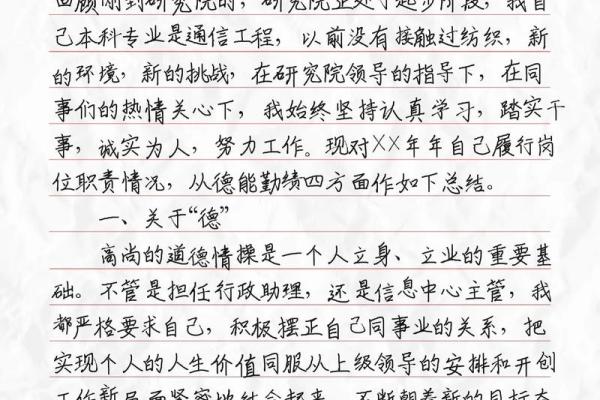 回顾刚到研究院时,研究院正处于起步阶段,我自
己本科专业是通信工程,以前没有接触过纺织,新
的环境,新的挑战,在研究院领导的指导下,在同
事们的热情关心下,我始终坚持认真学习,踏实干
事,诚实为人,努力工作。现对XX年年自己履行岗
位职责情况,从德能勤绩四方面作如下总结。
一、关于“德”
高尚的道德情操是一个人立身、立业的重要基
础。不管是担任行政助理,还是信息中心主管,我
都严格要求自己,积极摆正自己同事业的关系,把
实现个人的人生价值同服从上级领导的安排和开创
工作新局面紧密地结合起来,不断朝着新的目标奋